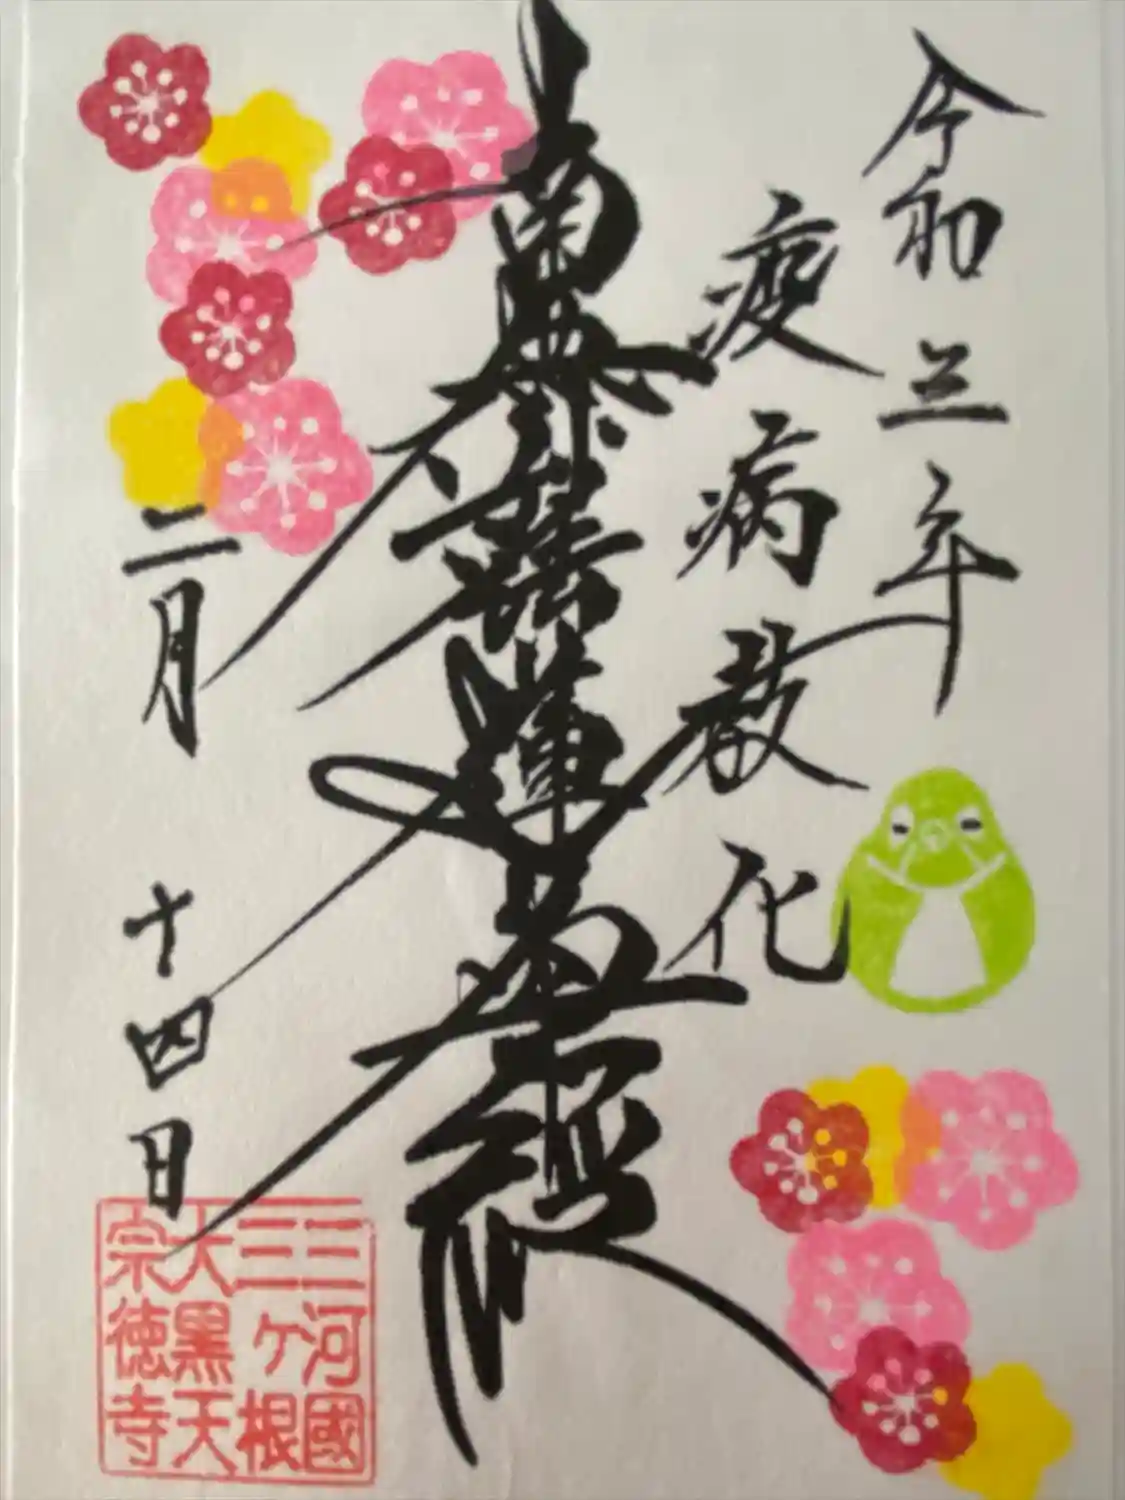 令和三年
疫病教化
南無妙法蓮華経
二月十四日
三河國
三ヶ根
大黒天
宗徳寺